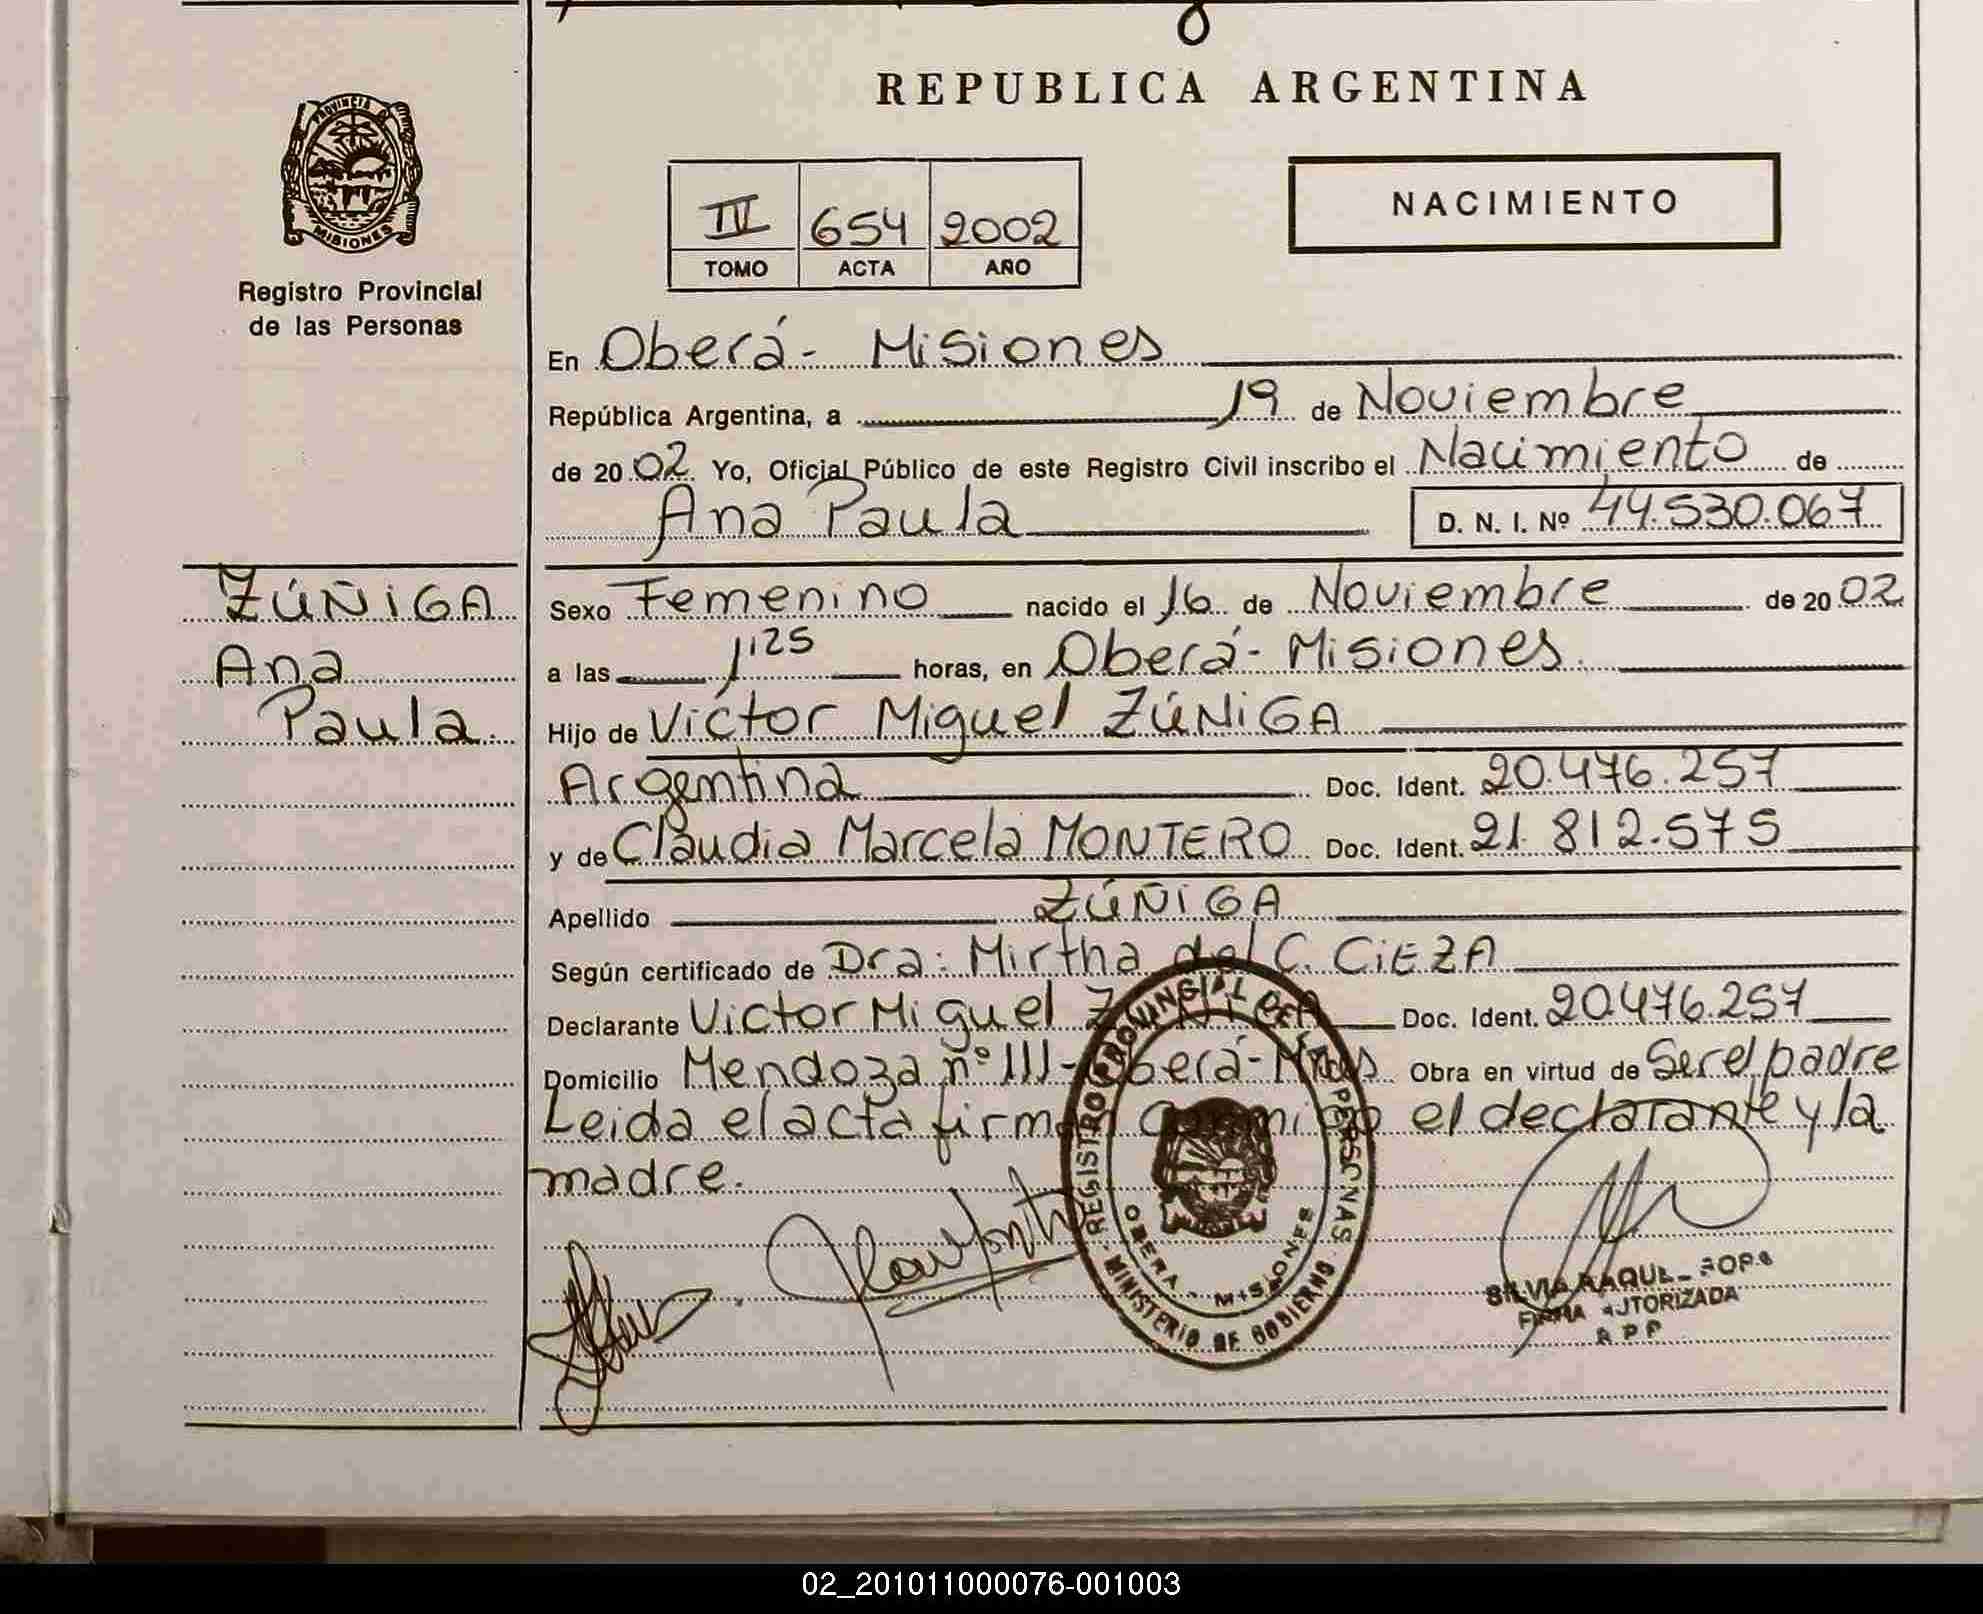 REPUBLICA ARGENTINA
PROVINCIA DE MISIONES
Registro Provincial
de las Personas
IV 654 2002
TOMO ACTA AÑO
NACIMIENTO
En Oberá - Misiones
República Argentina, a 19 de Noviembre
de 2002 Yo, Oficial Público de este Registro Civil inscribo el Nacimiento de
Ana Paula D. N. I. Nº 44.530.067
ZÚÑIGA
Ana
Paula.
Sexo Femenino nacido el 16 de Noviembre de 2002
a las 1,25 horas, en Oberá - Misiones.
Hijo de Víctor Miguel ZÚÑIGA
Argentina Doc. Ident. 20.476.257
y de Claudia Marcela MONTERO Doc. Ident. 21.812.575
Apellido ZÚÑIGA
Según certificado de Dra: Mirtha del C. CIEZA
Declarante Victor Miguel ZÚÑIGA Doc. Ident. 20.476.257
Domicilio Mendoza nº 111 - Oberá - Mnes Obra en virtud de Ser el padre
Leida el acta firman conmigo el declarante y la
madre.
REGISTRO PROVINCIAL DE LAS PERSONAS
OBERA - MISIONES
MINISTERIO DE GOBIERNO
SILVIA RAQUEL
FIRMA AUTORIZADA
02_201011000076-001003